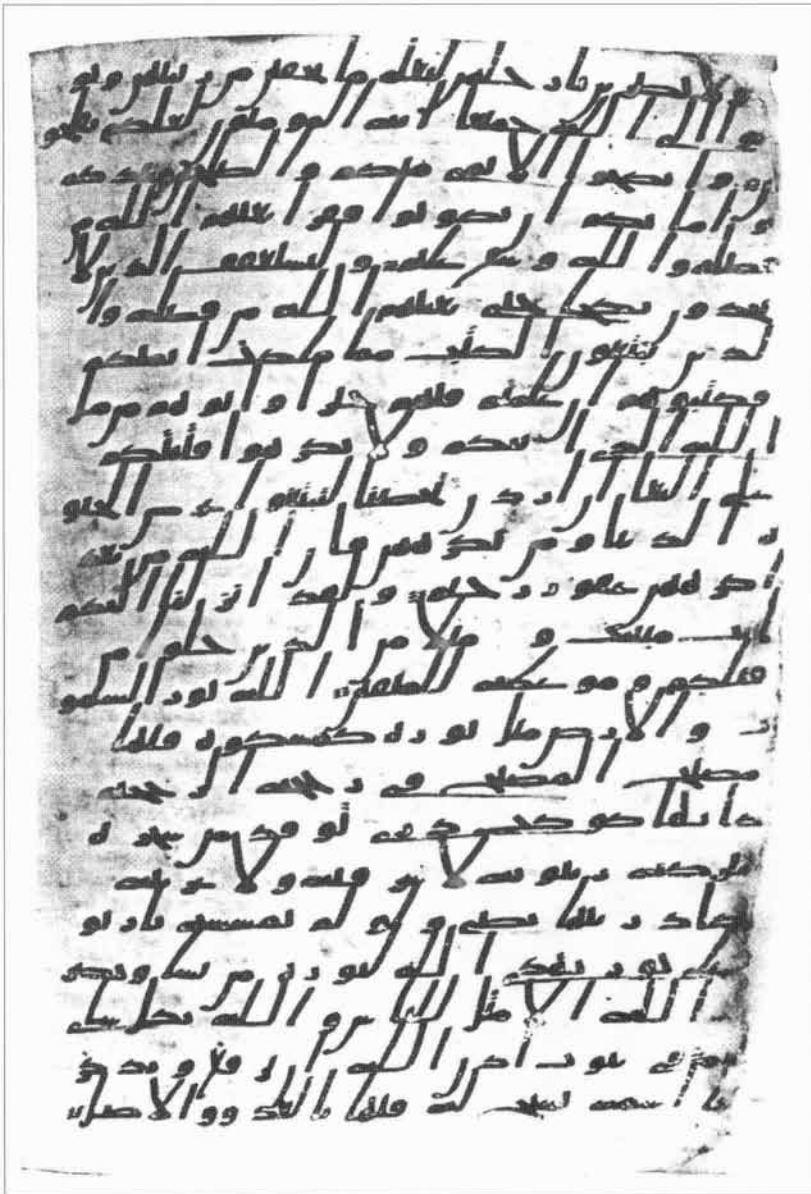 ولا يضربن بارجلهن ليعلم ما يخفين من زينتهن وتو
بوا الى الله جميعا ايه المومنون لعلكم تفلحو
ن وانكحوا الايمى منكم والصلحين من عبدكم
وامايكم ان يكونوا فقرا يغنهم الله م
ن فضله والله وسع عليم وليستعفف الذين لا
يجدون نكحا حتى يغنيهم الله من فضله وا
لذين يبتغون الكتب مما ملكت ايمنكم
فكتبوهم ان علمتم فيهم خيرا واتوهم من ما
ل الله الذي اتيكم ولا تكرهوا فتيتكم
على البغا ان اردن تحصنا لتبتغوا عرض الحيو
ة الدنيا ومن يكرههن فان الله من بعد
اكرههن غفور رحيم ولقد انزلنا اليكم
ايت مبينت ومثلا من الذين خلوا من
قبلكم وموعظة للمتقين الله نور السمو
ت والارض مثل نوره كمشكوة فيها
مصبح المصبح في زججة الزججة
كانها كوكب دري توقد من شجرة
مبركة زيتونة لا شرقية ولا غربية
يكاد زيتها يضي ولو لم تمسسه نار نو
ر على نور يهدي الله لنوره من يشا ويضر
ب الله الامثل للناس والله بكل شي
عليم في بيوت اذن الله ان ترفع ويذكر
فيها اسمه يسبح له فيها بالغدو والاصال